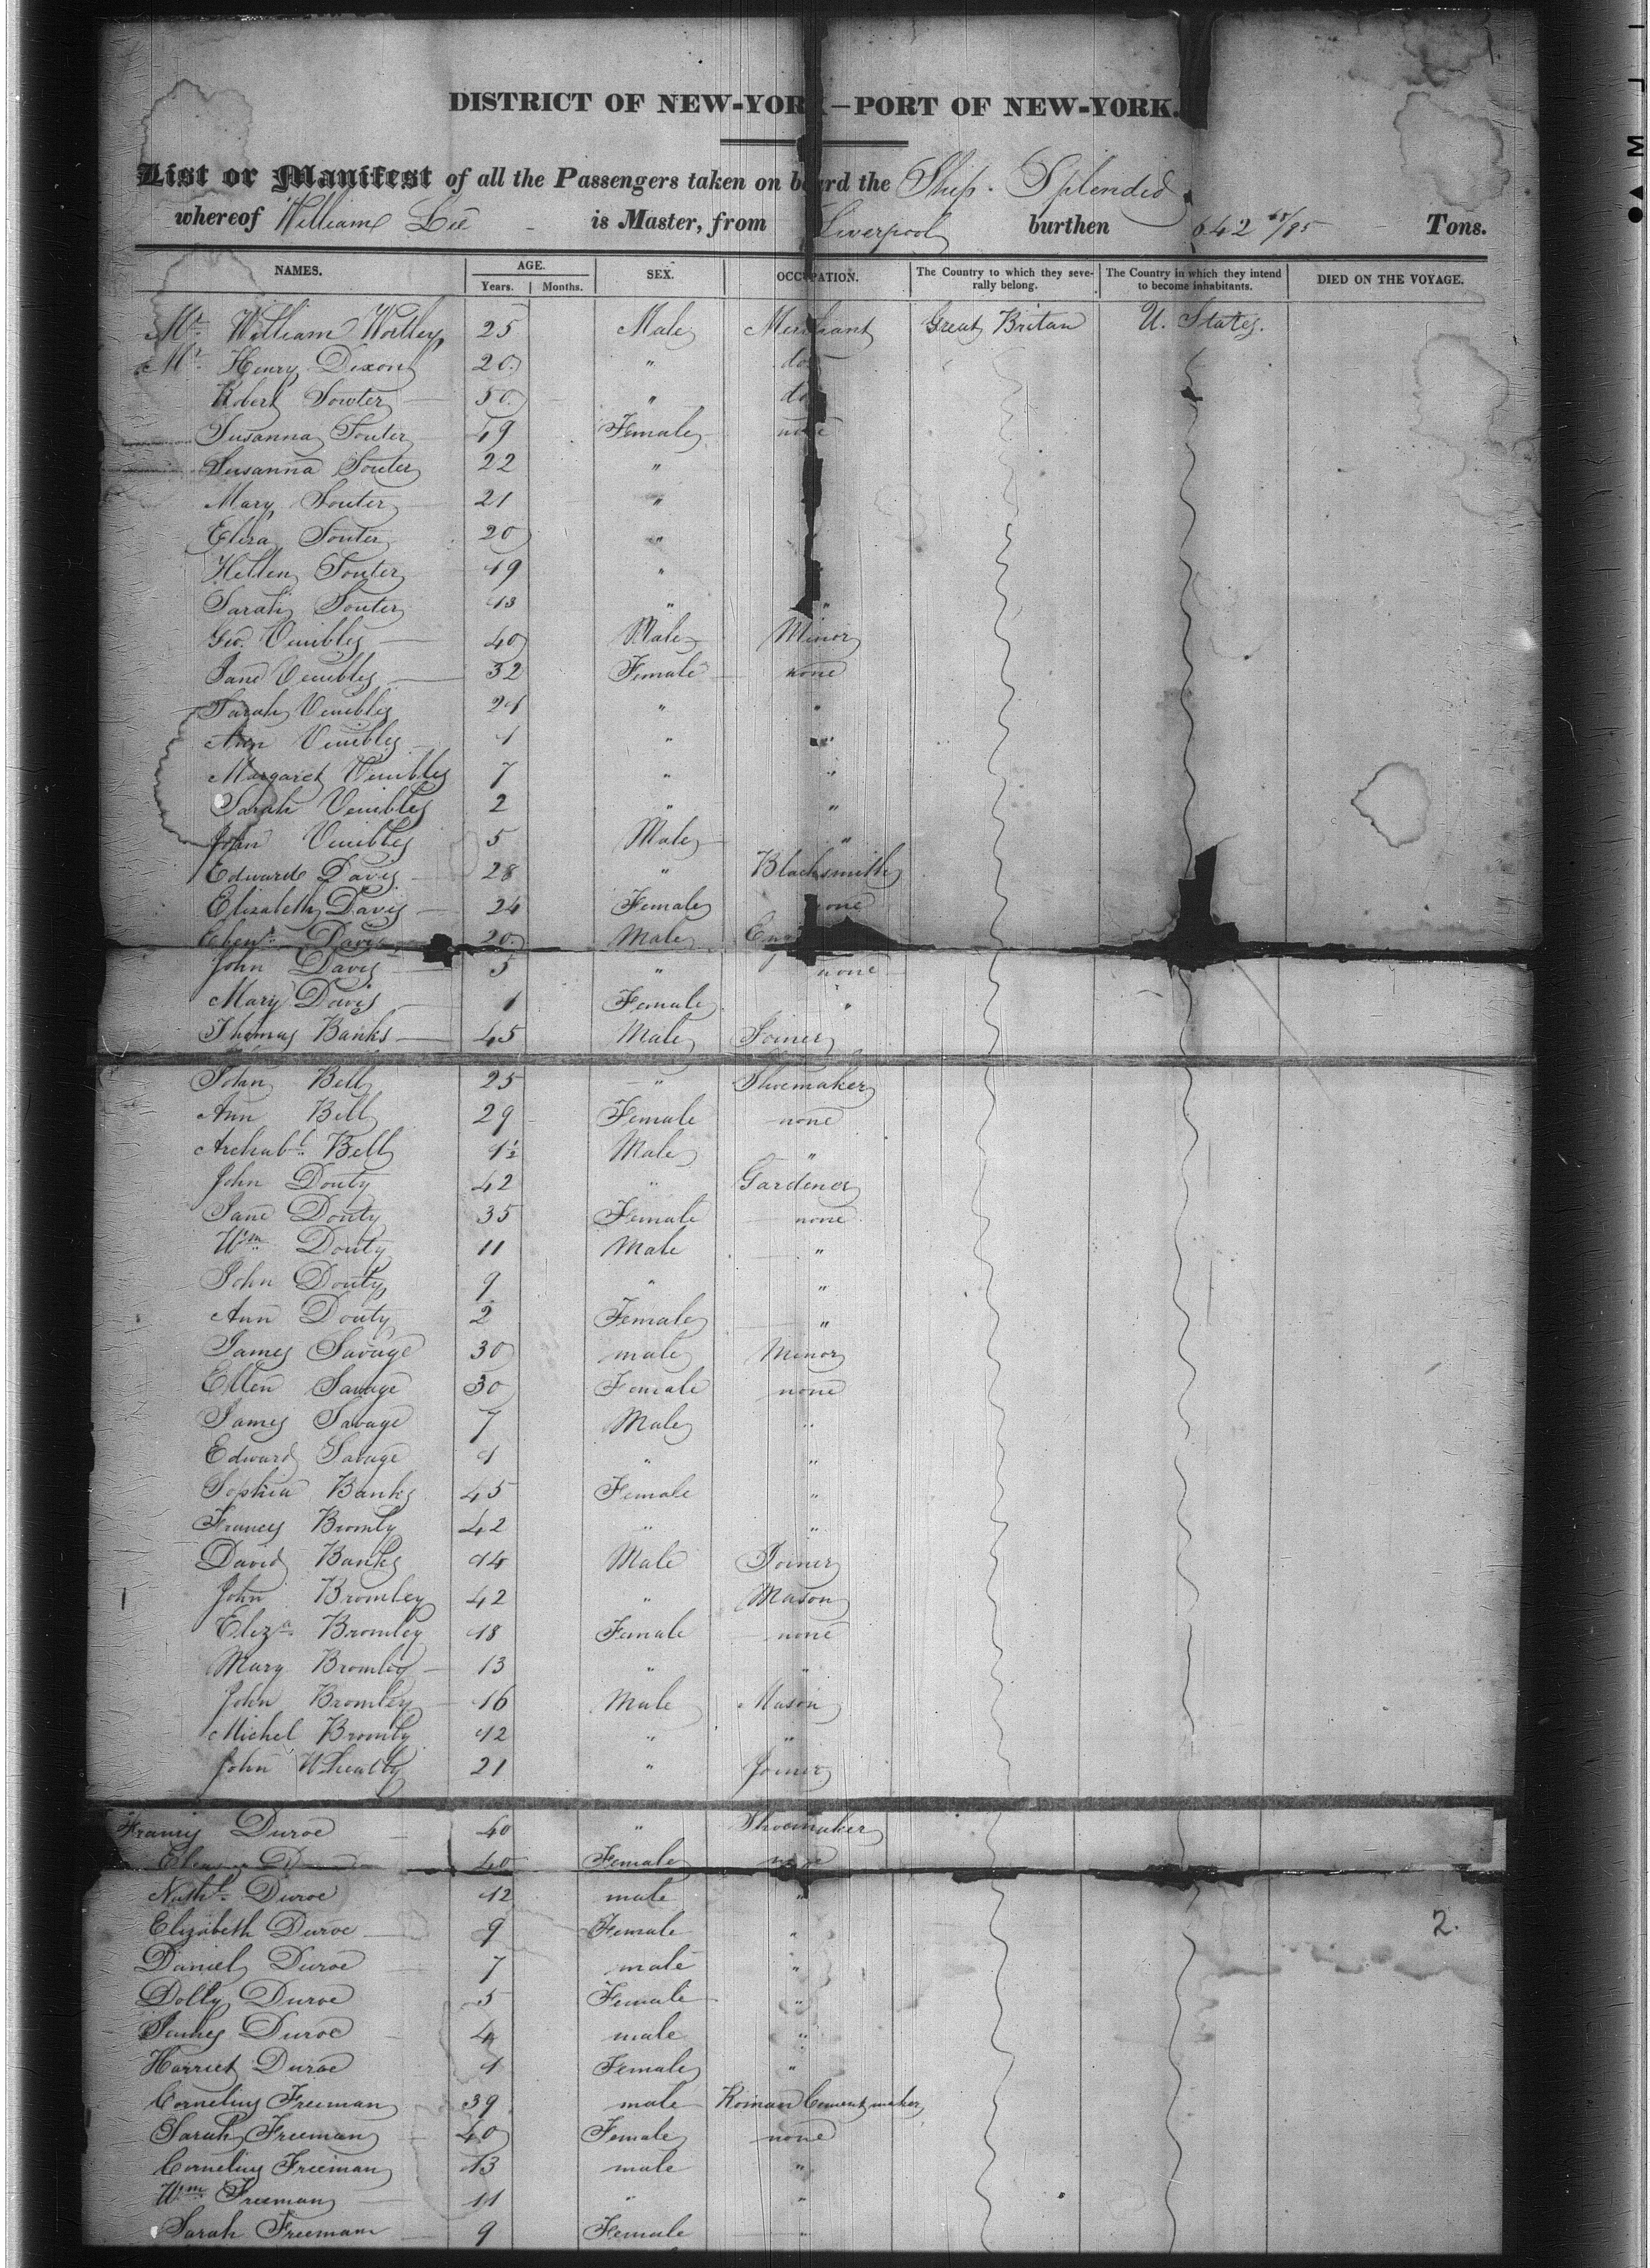 1.
DISTRICT OF NEW-YORK—PORT OF NEW-YORK.
List or Manifest of all the Passengers taken on board the Ship Splendid
whereof William Lee is Master, from Liverpool burthen 642 68/95 Tons.
NAMES. AGE. SEX. OCCUPATION. The Country to which they severally belong. The Country in which they intend to become inhabitants. DIED ON THE VOYAGE.
Years. Months.
Mr. William Wortley 25 Male Merchant Great Britan U. States.
Mr. Henry Dixon 20 " do
Robert Souter 50 " do
Susanna Souter 49 Female none
Susanna Souter 22 "
Mary Souter 21 "
Eliza Souter 20 "
Hellen Souter 19 "
Sarah Souter 13 " "
Geo. Venibles 40 Male Minor
Jane Venibles 32 Female none
Sarah Venibles 21 " "
Ann Venibles 1 " "
Margaret Venibles 7 " "
Sarah Venibles 2 " "
John Venibles 5 Male "
Edward Davis 28 " Blacksmith
Elizabeth Davis 24 Female none
Ebenr. Davis 20 Male
John Davis 5 " none
Mary Davis 1 Female "
Thomas Banks 45 Male Joiner
John Bell 25 " Shoemaker
Ann Bell 29 Female none
Archabl. Bell 1½ Male "
John Douty 42 " Gardener
Jane Douty 35 Female none
Wm. Douty 11 Male "
John Douty 9 " "
Ann Douty 2 Female "
James Savage 30 male Minor
Ellen Savage 30 Female none
James Savage 7 Male "
Edward Savage 1 " "
Sophia Banks 45 Female "
Frances Bromly 42 " "
David Banks 14 Male Joiner
John Bromley 42 " Mason
Eliza. Bromley 18 Female none
Mary Bromley 13 " "
John Bromley 16 Male Mason
Michel Bromly 12 " "
John Wheatly 21 " Joiner
Francis Duroe 40 " Shoemaker
40 Female none
Nathl. Duroe 12 male "
Elizabeth Duroe 9 Female "
2.
Daniel Duroe 7 male "
Dolly Duroe 5 Female "
James Duroe 4 male "
Harriet Duroe 1 Female "
Cornelius Freeman 39 male Roman Cement maker
Sarah Freeman 40 Female none
Cornelius Freeman 13 male "
Wm. Freeman 11 " "
Sarah Freeman 9 Female "